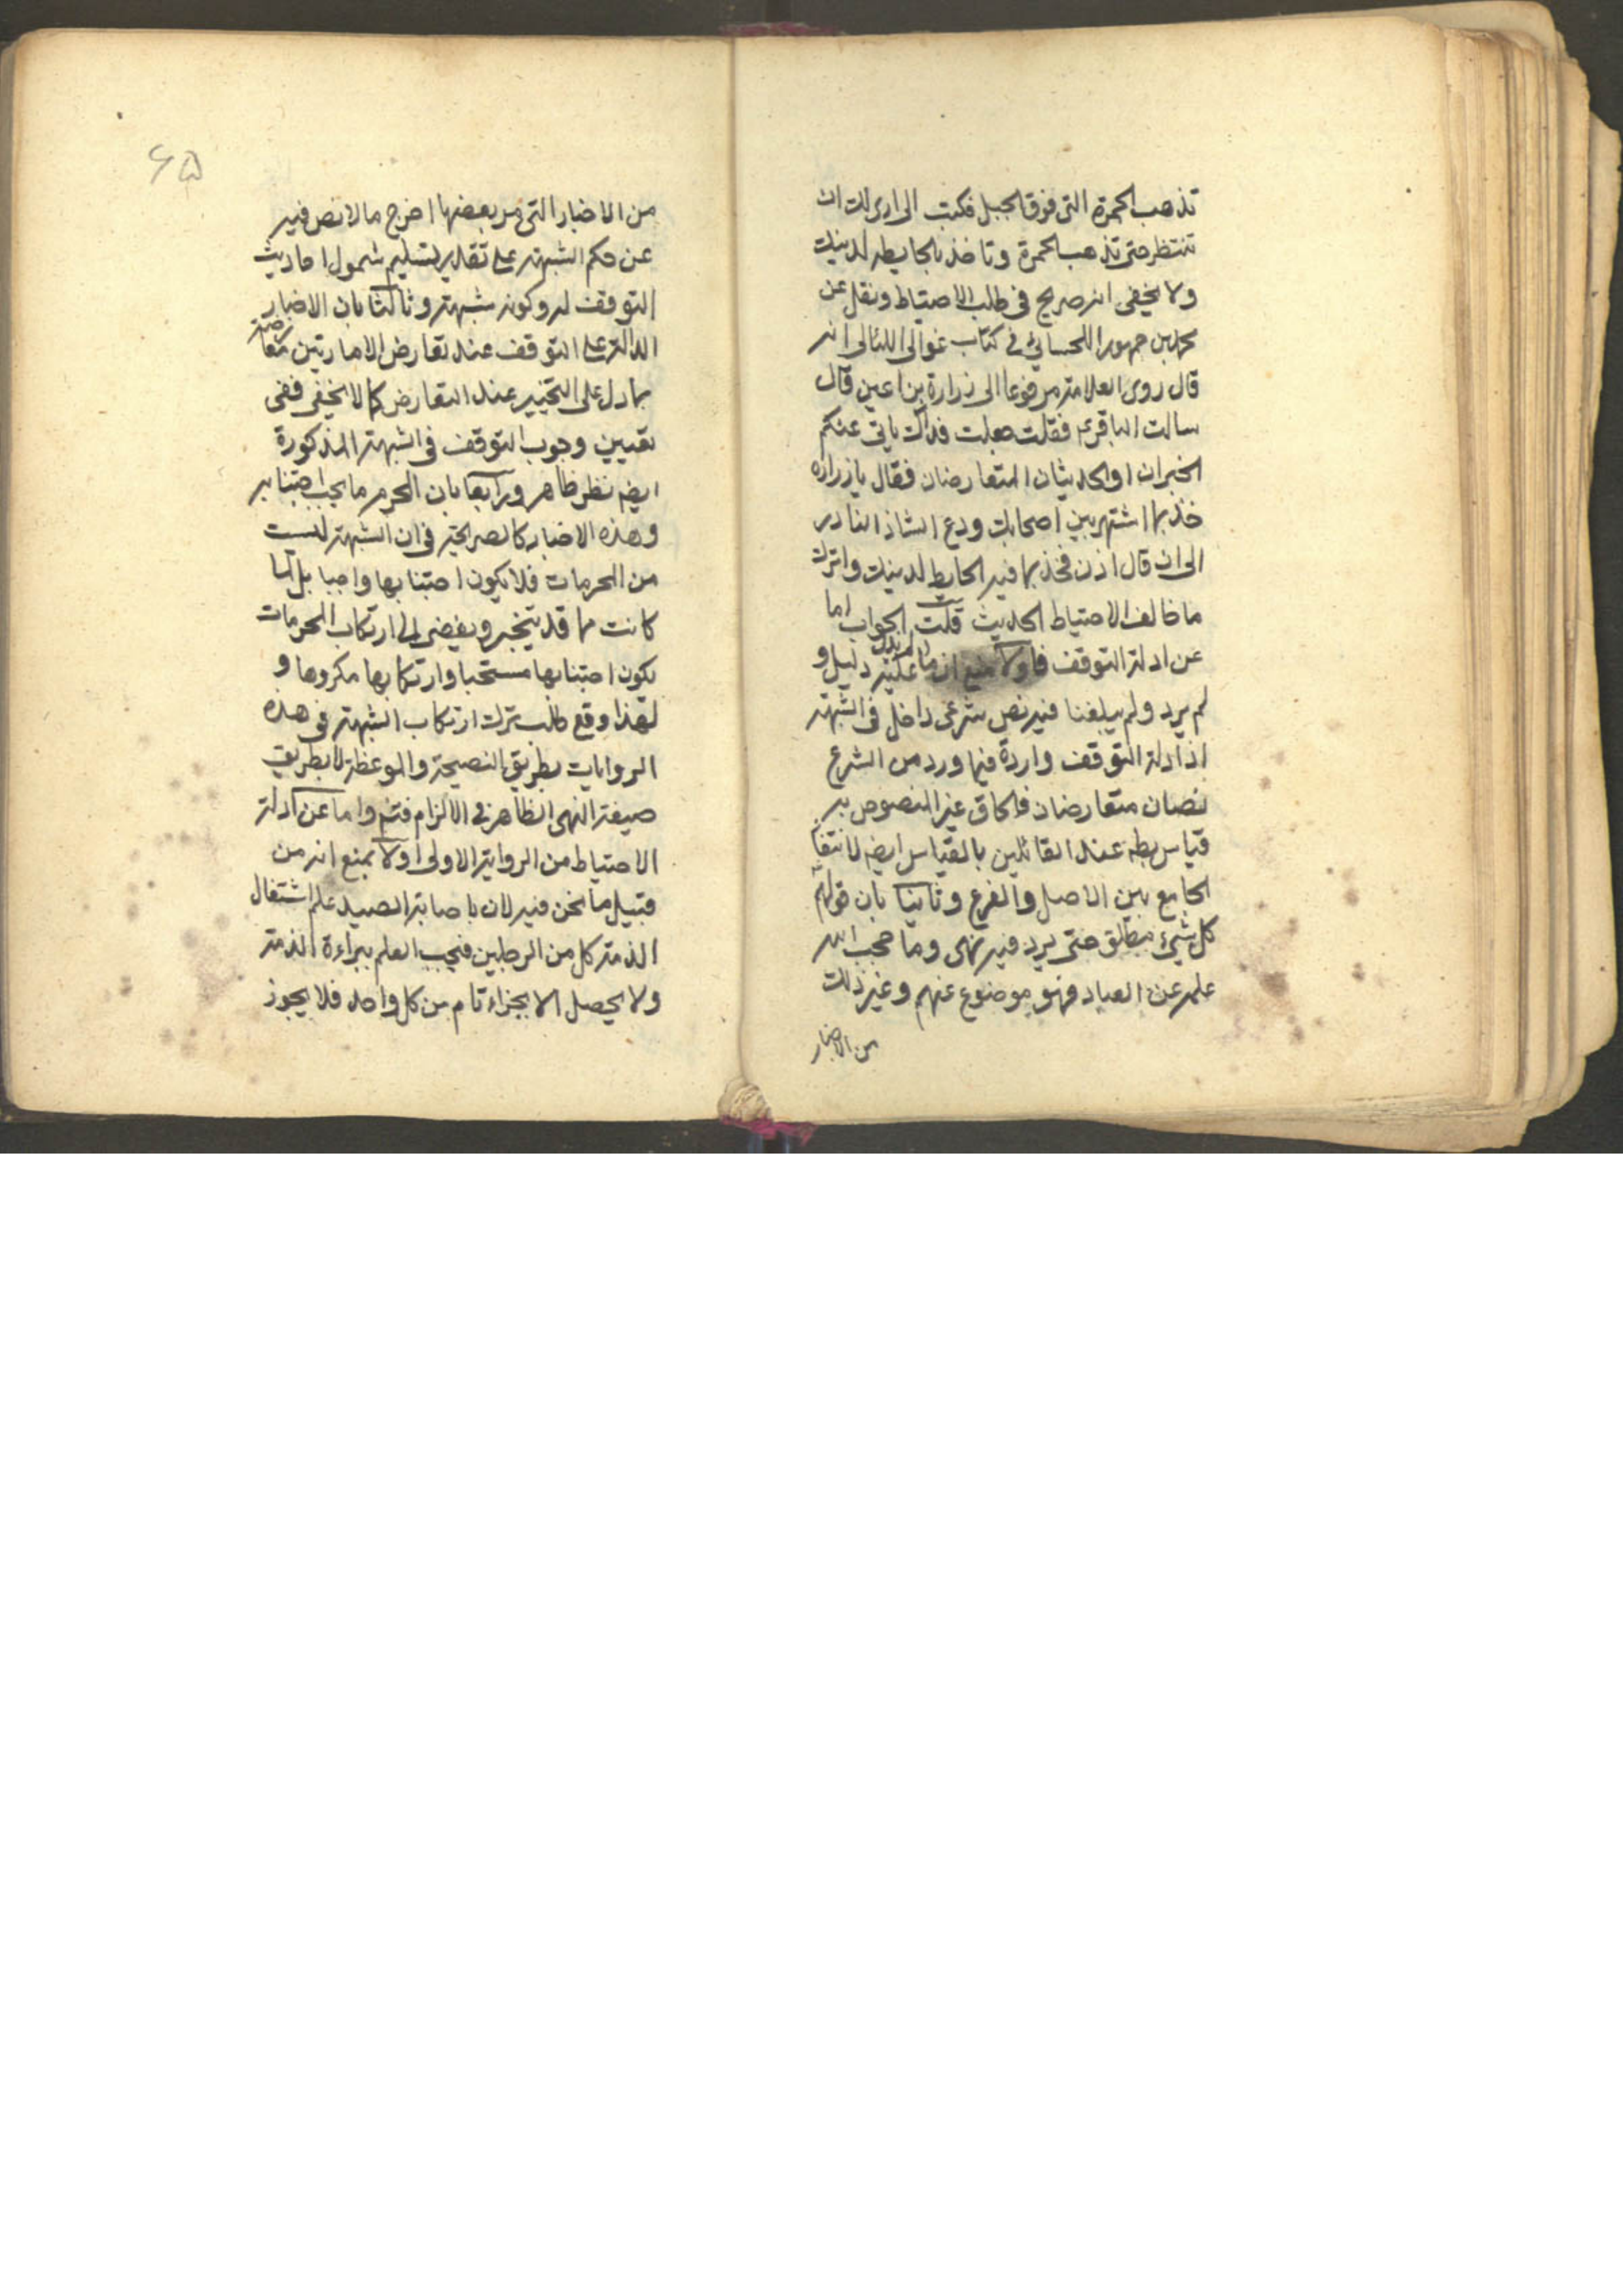 تذهب الحمرة التى فوق الجبل فكتب الى ارى لك ان
تنتظر حتى تذهب الحمرة وتاخذ بالحايطه لدينك
ولا يخفى انه صريح فى طلب الاحتياط ونقل عن
محمد بن جمهور اللحسائى فى كتاب غوالى اللئالى انه
قال روى العلامة مرفوعا الى زرارة بن اعين قال
سالت الباقر ع فقلت جعلت فداك ياتى عنكم
الخبران او الحديثان المتعارضان فقال يا زراره
خذ بما اشتهر بين اصحابك ودع الشاذ النادر
الى ان قال اذن فخذ بما فيه الحايط لدينك واترك
ما خالف الاحتياط الحديث قلت الجواب اما
عن ادلة التوقف فاولا دليل و
لم يرد ولم يبلغنا فيه نص شرعى داخل فى الشبهة
اذ ادلة التوقف واردة فيما ورد من الشرع
نصان متعارضان فالحاق غير المنصوص به
قياس بط عند القائلين بالقياس ايضه لانتفا
الجامع بين الاصل والفرع وثانيا بان قولهم
كل شيئ مطلق حتى يرد فيه نهى وما حجب الله
علمه عن العباد فهو موضوع عنهم وغير ذلك
من الاخبار
۶۵
من الاخبار التى مر بعضها اخرج مالا نص فيه
عن حكم الشبهة على تقدير تسليم شمول احاديث
التوقف له وكونه شبهة وثالثا بان الاخبار
الدالة على التوقف عند تعارض الامارتين معارضة
بما دل على التخيير عند التعارض كما لا يخفى ففى
تعيين وجوب التوقف فى الشبهة المذكورة
ايضه نظر ظاهر ورابعا بان المحرم ما يجب اجتنابه
وهذه الاخبار كالصريحة فى ان الشبهة ليست
من المحرمات فلا يكون اجتنابها واجبا بل لما
كانت مما قد ينجر ويفضى الى ارتكاب المحرمات
يكون اجتنابها مستحبا وارتكابها مكروها و
لهذا وقع طلب ترك ارتكاب الشبهة فى هذه
الروايات بطريق النصيحة والموعظة لا بطريق
صيغة النهى الظاهرة فى الالزام فتم واما عن ادلة
الاحتياط من الرواية الاولى اولا بمنع انه من
قبيل ما نحن فيه لان باصابة الصيد علم اشتغال
الذمة كل من الرجلين فيجب العلم ببراءة الذمة
ولا يحصل الا بجزاء تام من كل واحد فلا يجوز